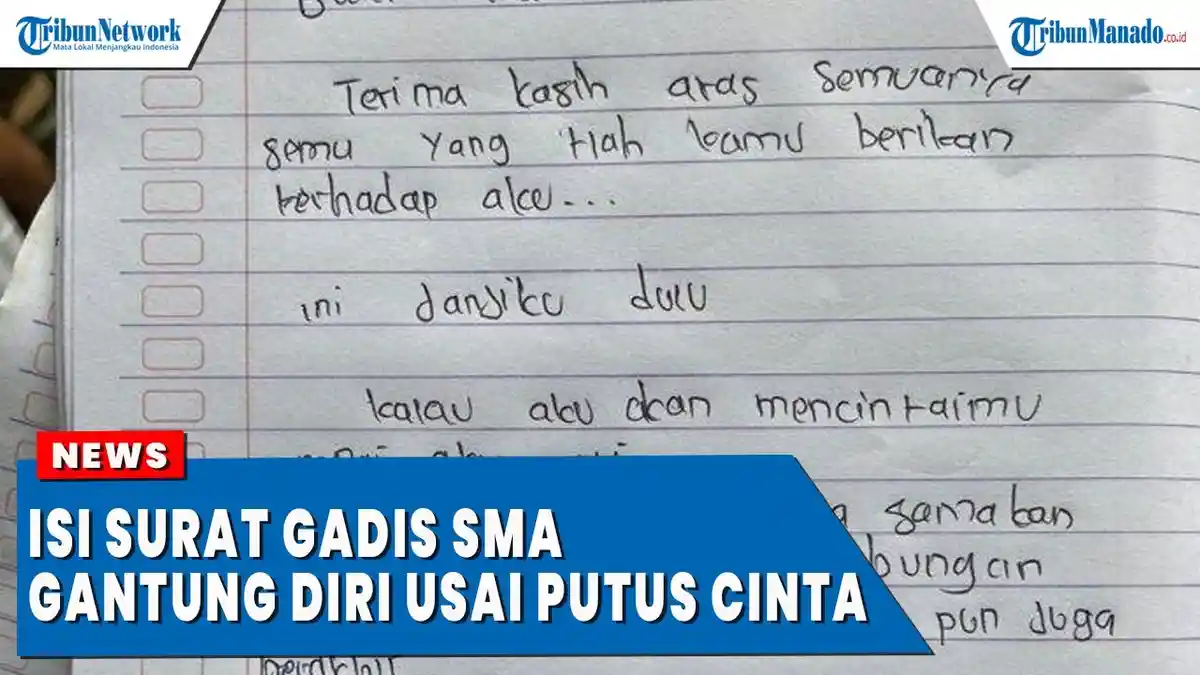 TribunNetwork
Mata Lokal Menjangkau Indonesia
TribunManado.co.id
Terima kasih aras semuanya
semu yang tlah kamu berikan
terhadap aku...
ini janjiku dulu
kalau aku akan mencintaimu
samakan
bungan
pun juga
NEWS
ISI SURAT GADIS SMA
GANTUNG DIRI USAI PUTUS CINTA